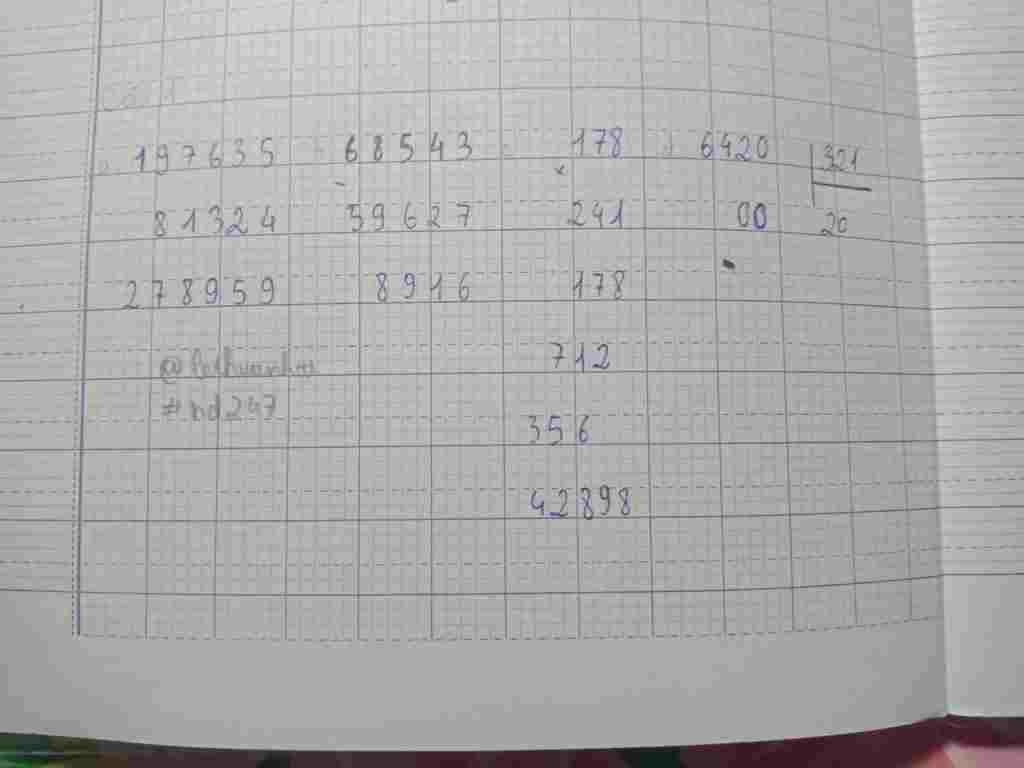 197635 68543 178 6420 321
- x
81324 59627 241 00 20
278959 8916 178
712
#hd247
356
42898